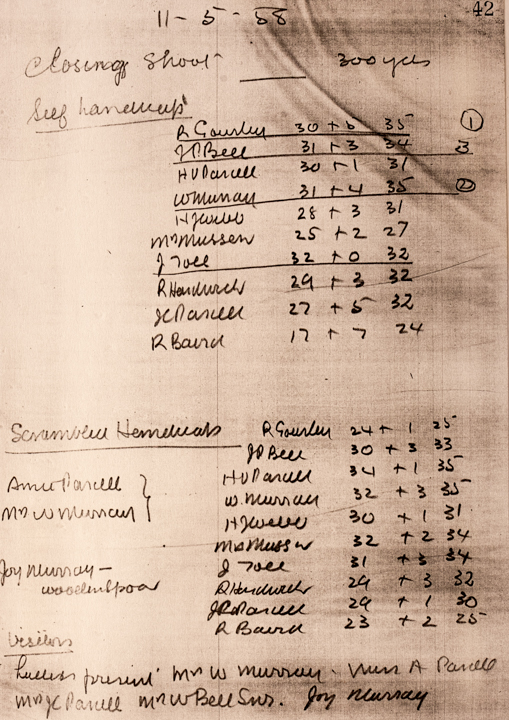 42
11-5-58
Closing Shoot 300 yds
Self handicaps
R Gourley 30 + 5 35 1
JP Bell 31 + 3 34 3
HV Parcell 30 + 1 31
W Murray 31 + 4 35 2
28 + 3 31
Mrs Mussen 25 + 2 27
J Toll 32 + 0 32
R Hardwick 29 + 3 32
JC Parcell 27 + 5 32
R Baird 17 + 7 24
Scrambled Handicaps R Gourley 24 + 1 25
JP Bell 30 + 3 33
HV Parcell 34 + 1 35
Parcell W. Murray 32 + 3 35
Mrs W Murray
30 + 1 31
Mrs Mussen 32 + 2 34
Joy Murray - J Toll 31 + 3 34
woodenspoon R Hardwick 29 + 3 32
Parcell 29 + 1 30
R Baird 23 + 2 25
Visitors
Ladies present Mrs W Murray. Miss A Parcell
Mrs JC Parcell Mrs W Bell Snr. Joy Murray